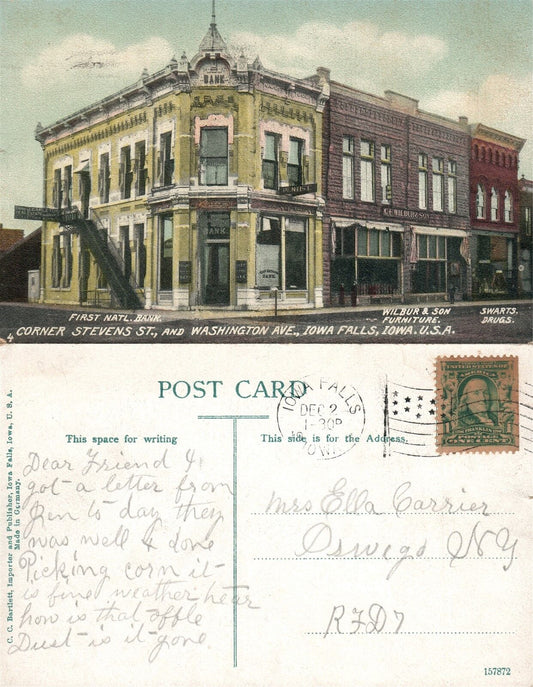 BANK
BANK
BANK
R.E. WILBUR & SON
FIRST NATL. BANK.
WILBUR & SON
FURNITURE.
SWARTS.
DRUGS.
4 CORNER STEVENS ST., AND WASHINGTON AVE., IOWA FALLS, IOWA. U.S.A.
POST CARD
This space for writing
This side is for the Address
C. C. Bartlett, Importer and Publisher, Iowa Falls, Iowa, U. S. A.
Made in Germany.
IOWA FALLS
DEC 2
1-30P
IOWA
UNITED STATES OF AMERICA
FRANKLIN
POSTAGE
ONE CENT
Dear Friend I
got a letter from
Ben to day they
was well & done
Picking corn it
is fine weather hear
how is that
Dust is it gone.
Mrs Ella Carrier
Oswego NY
RFD7
157872